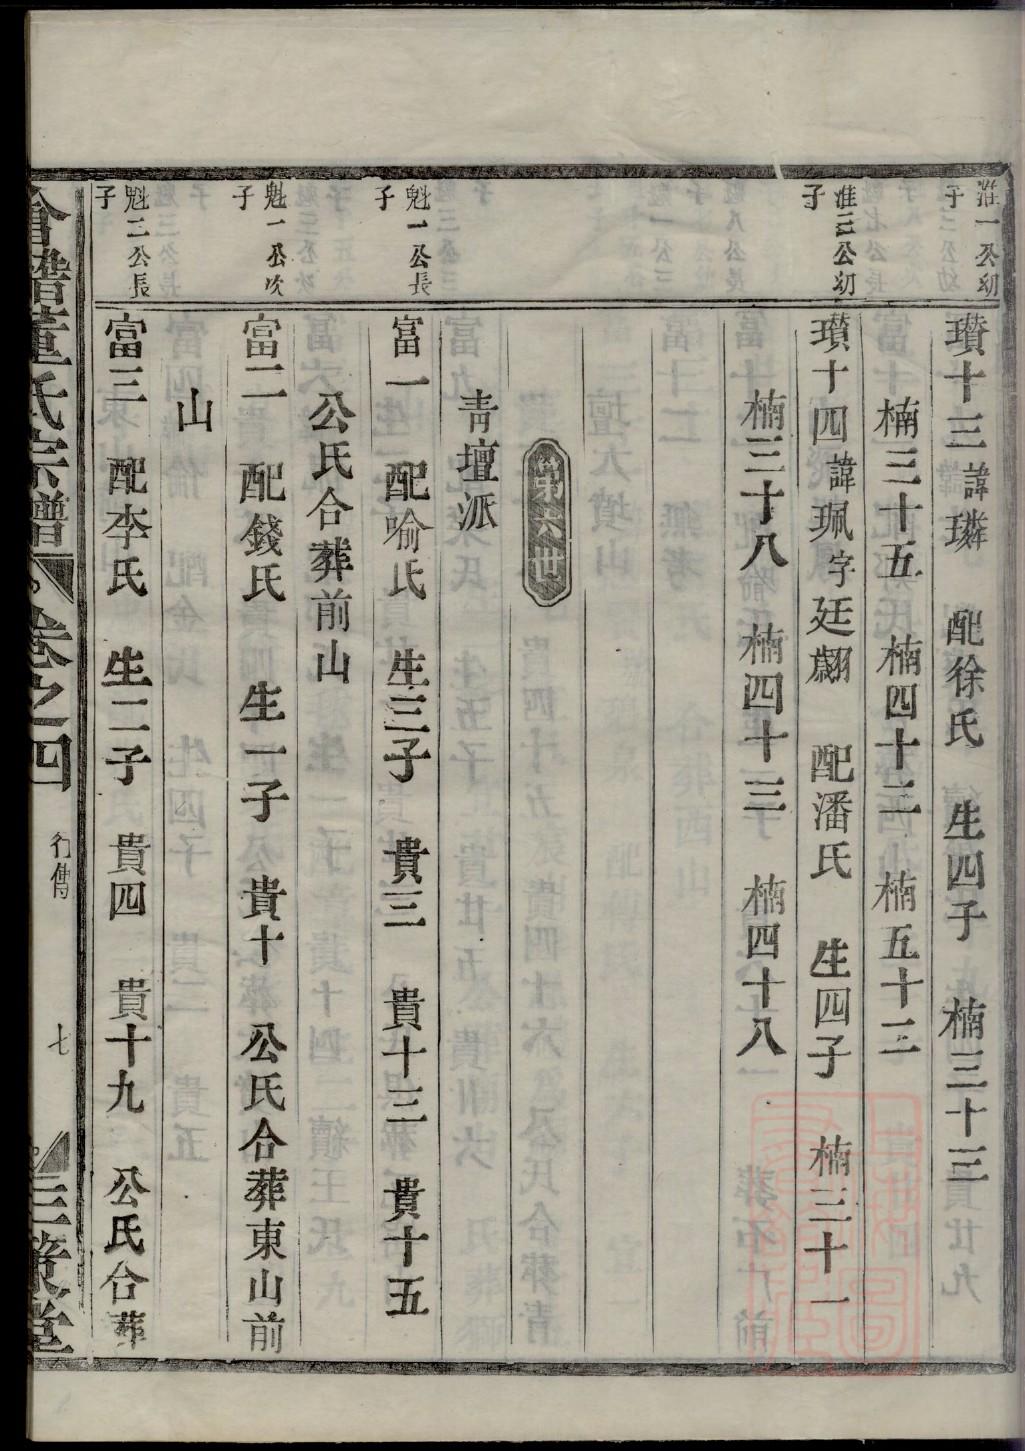 淮一公幼子
瓚十三 諱璘 配徐氏 生四子 楠三十三
楠三十五 楠四十二 楠五十二
淮三公幼子
瓚十四 諱珮 字廷翽 配潘氏 生四子 楠三十一
楠三十八 楠四十三 楠四十八
青壇派
魁一公長子
富一 配喻氏 生三子 貴三 貴十三 貴十五
公氏合葬前山
魁一公次子
富二 配錢氏 生一子 貴十 公氏合葬東山前
山
魁二公長子
富三 配李氏 生二子 貴四 貴十九 公氏合葬
董氏宗譜 卷之四 行傳 七 三策堂